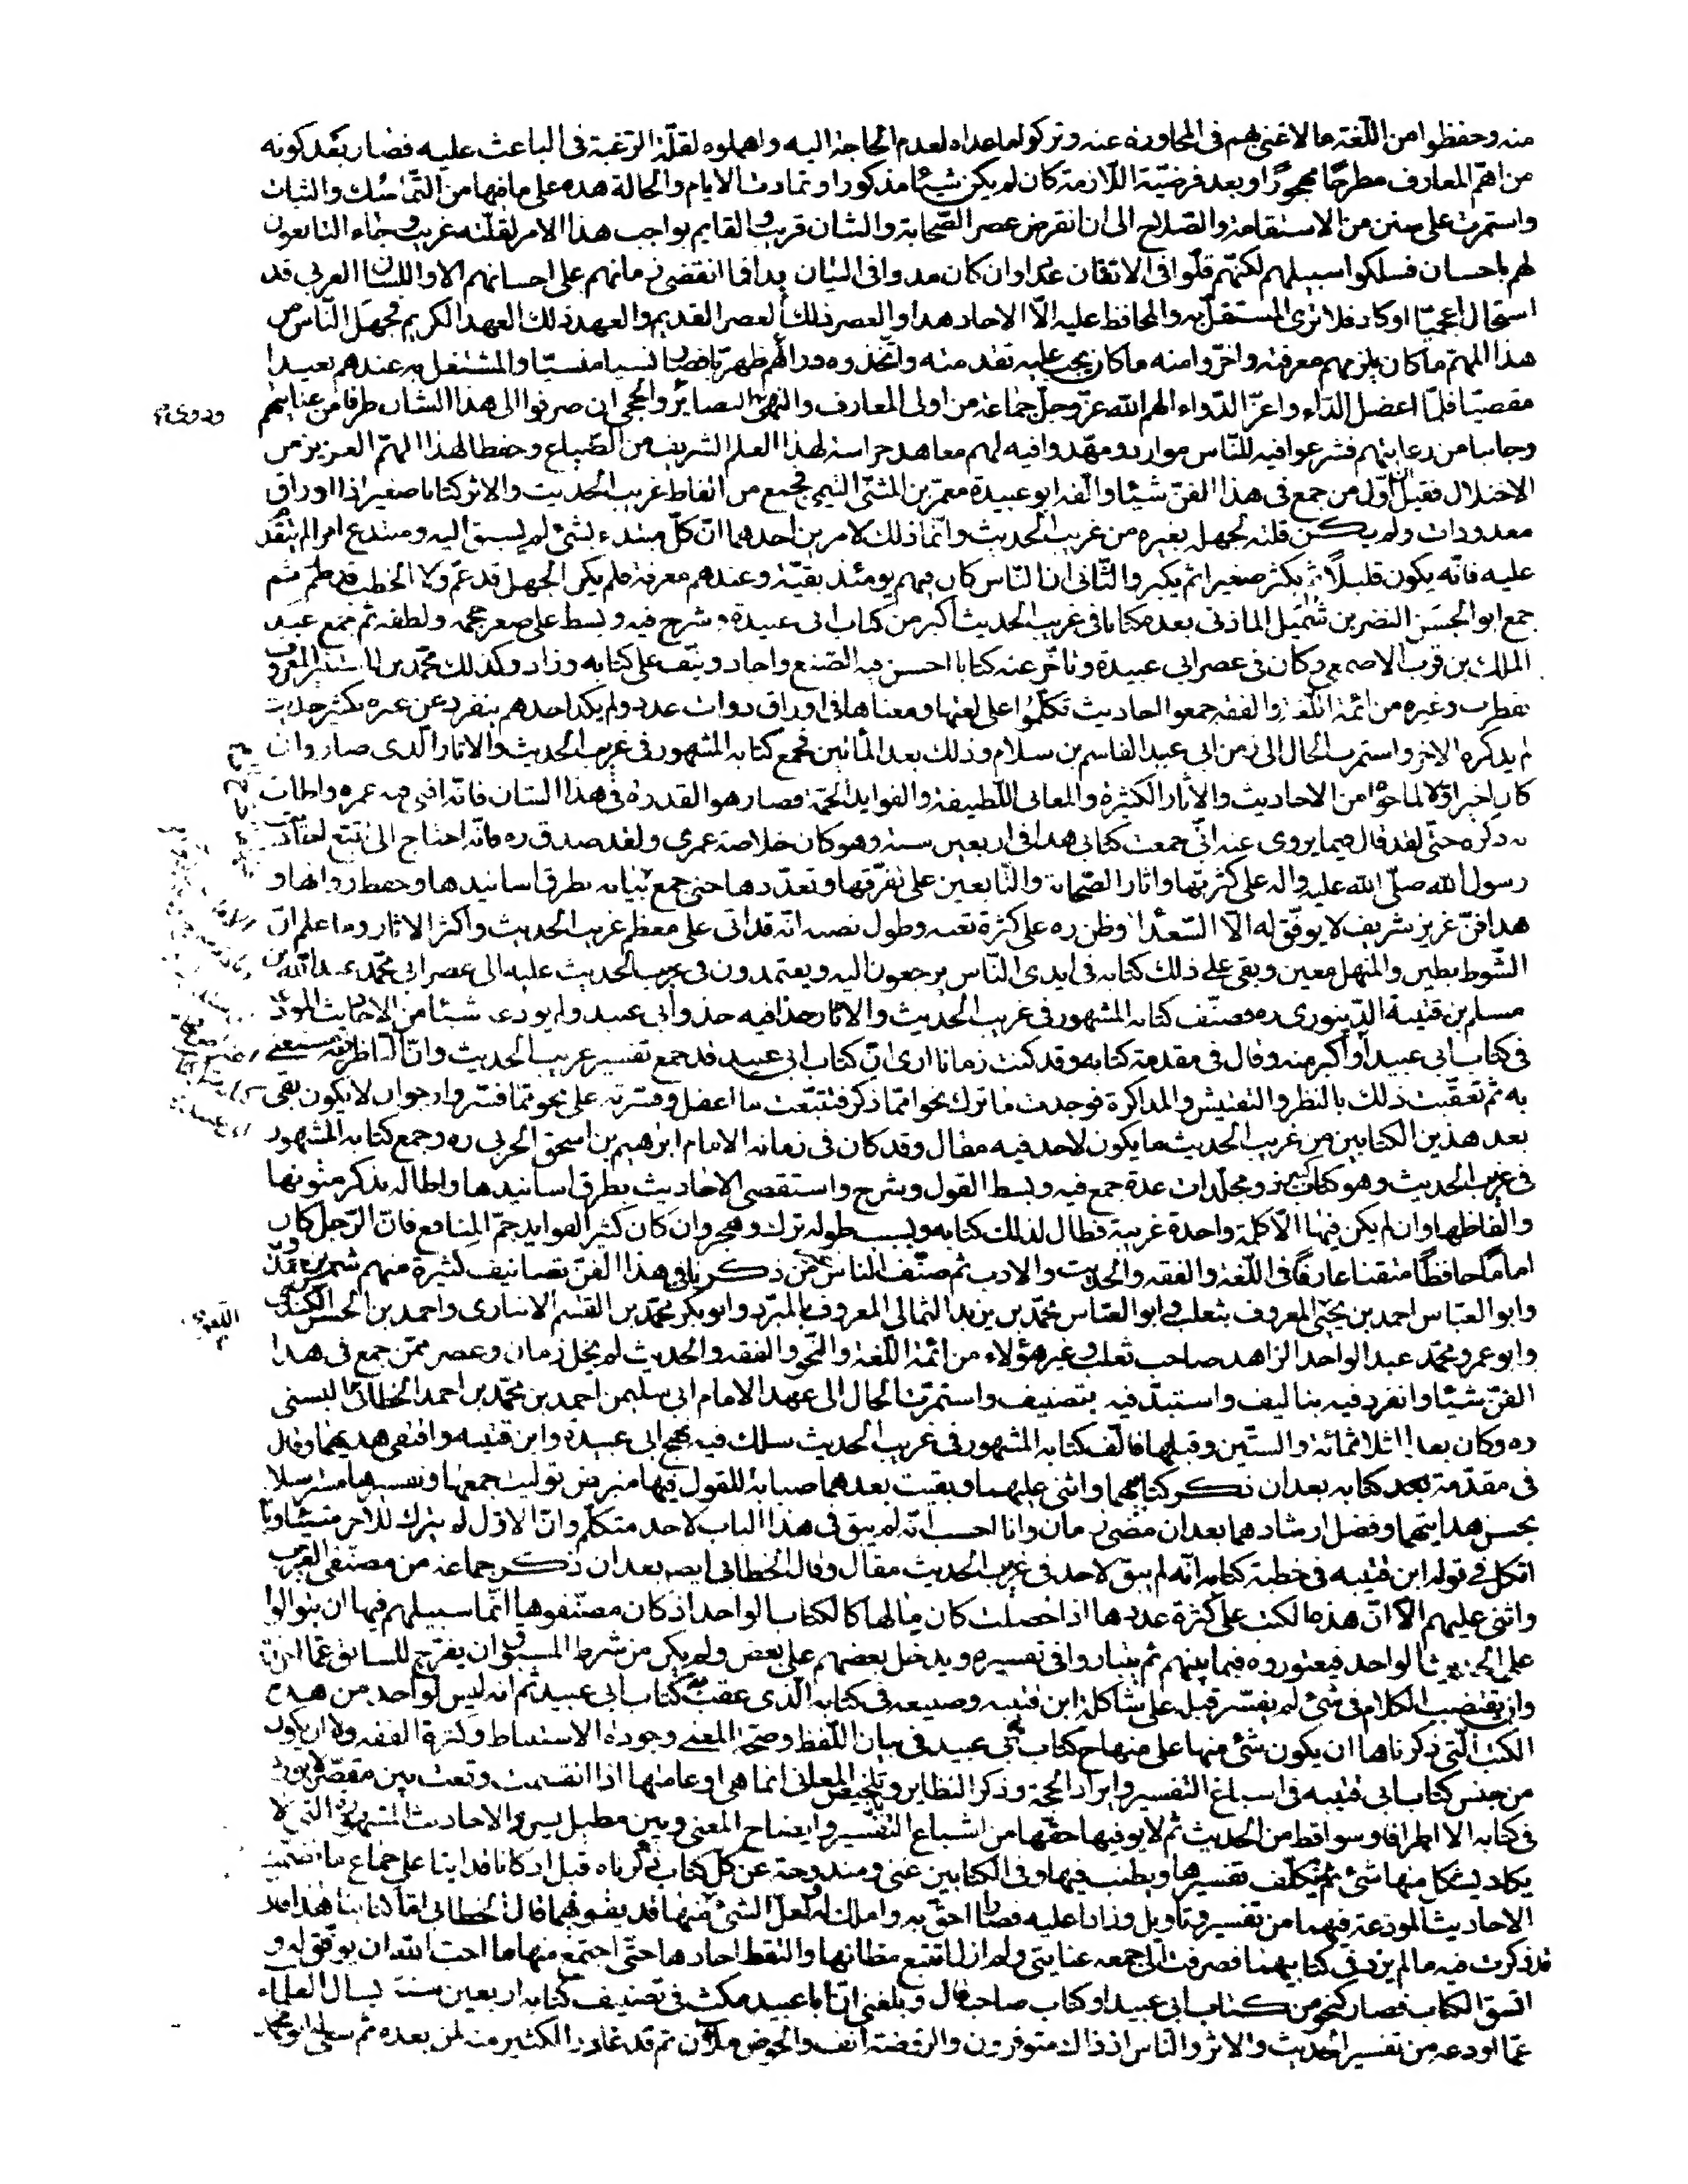 منه وحفظوا من اللّغة ما لا غنى لهم فى المحاورة عنه وتركوا ما عداه لعدم الحاجة اليه واهملوه لقلّة الرّغبة فى الباعث عليه فصار بعد كونه
من اهمّ المعارف مطرحًا مهجورًا وبعد فرضيّة اللّازمة كان لم يكن شيئا مذكورا وتمادت الايام والحالة هذه على ما فيها من التّماسك والثبات
واستمرت على سنن من الاستقامة والصّلاح الى ان انقرض عصر الصّحابة والشان قريب والقايم بواجب هذا الامر لقلّته غريب وجاء التابعون
لهم باحسان فسلكوا سبيلهم لكنّهم قلّوا فى الاتقان عددا وان كان مدوا فى البيان يدا فما انقضى زمانهم على احسانهم الا واللسان العربى قد
استحال اعجميّا او كاد فلا ترى المستقلّ به والمحافظ عليه الّا الاحاد هذا والعصر ذلك العصر القديم والعهد ذلك العهد الكريم فجهل النّاس من
هذا المهمّ ما كان يلزمهم معرفته واخّروا منه ما كان يجب عليهم تقدمته واتّخذوه وراءهم ظهريّا فصار نسيا منسيّا والمشتغل به عندهم بعيدا
مقصيّا فلمّا اعضل الدّاء واعزّ الدّواء الهم الله عزّ وجلّ جماعة من اولى المعارف والنهى البصائر والحجى ان صرفوا الى هذا الشان طرفا من عنايتهم
وجانبا من رعايتهم فشرعوا فيه للنّاس موارد ومهّدوا فيه لهم معاهد حراسة لهذا العلم الشريف من الضّياع وحفظا لهذا المهمّ العزيز من
الاختلال فقيل انّ اوّل من جمع فى هذا الفنّ شيئا والّف ابو عبيدة معمر بن المثنّى التيمى فجمع من الفاظ غريب الحديث والاثر كتابا صغيرا ذا اوراق
معدودات ولم يكن قلته لجهله بغيره من غريب الحديث وانّما ذلك لامرين احدهما انّ كلّ مبتدء لشئ لم يسبق اليه ومبتدع امر لم يتقدّم
عليه فانّه يكون قليلًا ثمّ يكثر صغيرا ثم يكبر والثّانى ان النّاس كان فيهم يومئذ بقيّة وعندهم معرفة فلم يكن الجهل قد عمّ ولا الخطب قد طمّ ثم
جمع ابو الحسن النضر بن شميل المازنى بعده كتابا فى غريب الحديث اكبر من كتاب ابى عبيدة وشرح فيه وبسط على صغر حجمه ولطفه ثم جمع عبد
الملك بن قريب الاصمعى وكان فى عصر ابى عبيدة وتاخّر عنه كتابا احسن فيه الصّنع واجاد ونيّف على كتابه وزاد وكذلك محمّد بن المستنير المعروف
بقطرب وغيره من ائمّة اللّغة والفقه جمعوا احاديث تكلّموا على لغتها ومعناها فى اوراق ذوات عدد ولم يكد احدهم ينفرد عن غيره بكثير حديث
لم يذكره الاخر واستمرت الحال الى زمن ابى عبيد القاسم بن سلام وذلك بعد المأتين فجمع كتابه المشهور فى غريب الحديث والاثار الّذى صار وان
كان اخيرا اوّلا لما حواه من الاحاديث والاثار الكثيرة والمعانى اللّطيفة والفوايد الجمّة فصار هو القدوة فى هذا الشان فانّه افنى فيه عمره واطاب
به ذكره حتّى لقد قال فيما يروى عنه انّى جمعت كتابى هذا فى اربعين سنة وهو كان خلاصة عمرى ولقد صدق ره فانّه احتاج الى تتبّع احاديث
رسول الله صلّى الله عليه واله على كثرتها واثار الصّحابة والتّابعين على تفرّقها وتعدّدها حتى جمع بيانه بطرق اسانيدها وحفظ رواتها و
هذا فنّ عزيز شريف لا يوفّق له الّا السّعداء وظن ره على كثرة تعبه وطول نصبه انّه قد اتى على معظم غريب الحديث واكثر الاثار وما علم انّ
الشّوط بطين والمنهل معين وبقى على ذلك كتابه فى ايدى النّاس يرجعون اليه ويعتمدون فى غريب الحديث عليه الى عصر ابى محمّد عبد الله بن
مسلم بن قتيبة الدّينورى ره فصنّف كتابه المشهور فى غريب الحديث والاثار حذا فيه حذو ابى عبيد ولم يودعه شيئا من الاحاديث المودعة
فى كتاب ابى عبيد او اكبر منه وقال فى مقدمة كتابه وقد كنت زمانا ارى انّ كتاب ابى عبيد قد جمع تفسير غريب الحديث وانّ النّاظر فيه مستغنى
به ثم تعقّبت ذلك بالنظر والتفتيش والمذاكرة فوجدت ما ترك نحوا ممّا ذكر فتتبّعت ما اغفل وفسّرته على نحو ممّا فسّر وارجو ان لا يكون بقى
بعد هذين الكتابين من غريب الحديث ما يكون لاحد فيه مقال وقد كان فى زمانه الامام ابراهيم بن اسحق الحربى ره وجمع كتابه المشهور
فى غريب الحديث وهو كتاب كبير ذو مجلّدات عدة جمع فيه وبسط القول وشرح واستقصى الاحاديث بطرق اسانيدها واطاله بذكر متونها
والفاظها وان لم يكن فيها الّا كلمة واحدة غريبة فطال لذلك كتابه وبسبب طوله ترك وهجر وان كان كثير الفوايد جمّ المنافع فانّ الرّجل كان
امامًا حافظًا متقنا عارفًا فى اللّغة والفقه والحديث والادب ثم صنّف الناس غير من ذكرنا فى هذا الفنّ تصانيف كثيرة منهم شمر بن حمدويه
وابو العبّاس احمد بن يحيى المعروف بثعلب وابو العبّاس محمّد بن يزيد الثمالى المعروف بالمبرّد وابو بكر محمّد بن القسم الانبارى واحمد بن الحسن الكندى
وابو عمرو محمّد عبد الواحد الزاهد صاحب ثعلب وغير هؤلاء من ائمّة اللّغة والنّحو والفقه والحديث لم يخل زمان وعصر ممّن جمع فى هذا
الفنّ شيئا وانفرد فيه بتاليف واستبدّ فيه بتصنيف واستمرّت الحال الى عهد الامام ابى سليمن احمد بن محمّد بن احمد الخطّابى البستى
ره وكان بعد الثلاثمائة والستّين وقبلها فالّف كتابه المشهور فى غريب الحديث سلك فيه نهج ابى عبيدة وابن قتيبه واقتفى هديهما وقال
فى مقدّمة كتابه بعد ان ذكر كتابيهما واثنى عليهما وبقيت بعدهما صبابة للقول فيها متبرض توليت جمعها وتفسيرها مسترسلا
بحسن هدايتهما وفضل ارشادهما بعد ان مضى زمان وانا احسب انّه لم يبق فى هذا الباب لاحد متكلّم وانّ الاوّل لم يترك للاخر شيئا و
اتكل فى قوله ابن قتيبه فى خطبة كتابه انّه لم يبق لاحد فى غريب الحديث مقال وقال الخطابى ايضا بعد ان ذكر جماعة من مصنّفى الغريب
واثنى عليهم الّا انّ هذه الكتب على كثرة عددها اذا حصلت كان مالها كالكتاب الواحد اذ كان مصنّفوها انّما سبيلهم فيها ان يتوالوا
على الحديث الواحد فيعتوروه فيما بينهم ثم يتباروا فى تفسيره ويدخل بعضهم على بعض ولم يكن من شرط المسبوق ان يفرّج للسابق عمّا احرزه
وان يقتضب الكلام فى شئ لم يفسّر قبل على شاكلة ابن قتيبه وصنيعه فى كتابه الّذى عقّب به كتاب ابى عبيد ثم انه ليس لواحد من هذه
الكتب الّتى ذكرناها ان يكون شئ منها على منهاج كتاب ابى عبيد فى بيان اللّفظ وصحّة المعنى وجودة الاستنباط وكثرة الفقه ولا ان يكون
من جنس كتاب ابن قتيبه فى اسباغ التفسير وايراد الحجّة وذكر النظاير وتلخيص المعانى انما هى او عامّتها اذا انقسمت وقعت بين مقصّر لا يورد
فى كتابه الا اطرافا وسواقط من الحديث ثم لا يوفيها حقّها من اشباع التفسير وايضاح المعنى وبين مطيل يسرد الاحاديث المشهورة الّتى لا
يكاد يشكل منها شئ ثم يتكلّف تفسيرها ويطنب فيها وفى الكتابين غنى ومندوحة عن كل كتاب ذكرناه قبل اذ كانا قد اتيا على جماع ما تضمّنت
الاحاديث المودعة فيهما من تفسير وتاويل وزادا عليه فصارا احقّ به واملك له ولعلّ الشئ منها قد يفوتهما قال الخطابى امّا كتابنا هذا
قد ذكرت فيه ما لم يرد فى كتابيهما فصرفت الى جمعه عنايتى ولم ازل اتتبع مظانها والتقط احادها حتى اجتمع منها ما احبّ الله ان يوفّق له و
اتسق الكتاب فصار كنحو من كتاب ابى عبيد او كتاب صاحبه قال وبلغنى انّ ابا عبيد مكث فى تصنيف كتابه اربعين سنة يسال العلماء
عمّا اودعه من تفسير الحديث والاثر والناس اذ ذاك متوفرون والروضة انف والحوض ملآن ثم قد غادر الكثير منه لمن بعده ثم سعى ابو محمّد